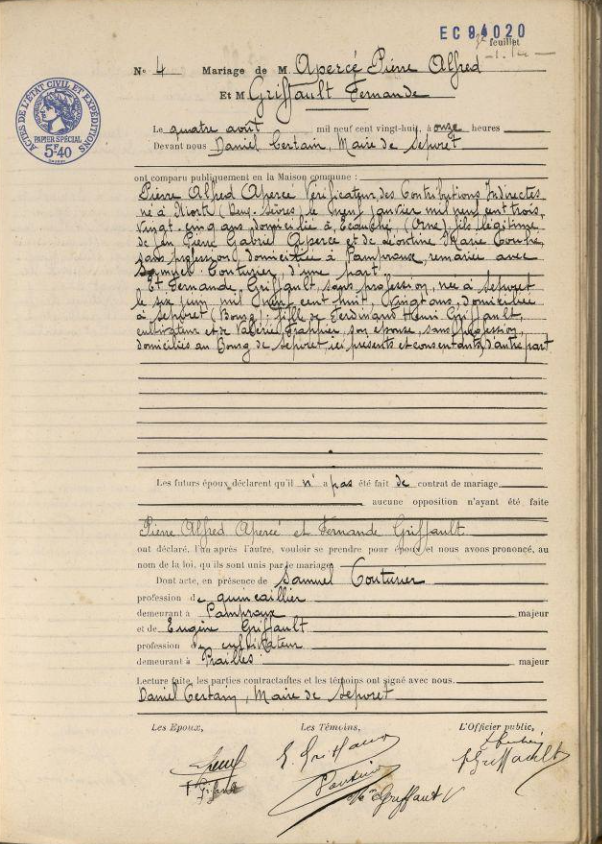 EC 94020
feuillet
N° 4 Mariage de M. Apercé Pierre Alfred
Et M Griffault Fernande
ACTES DE L'ÉTAT CIVIL ET EXPÉDITIONS
PAPIER SPÉCIAL
5F40
Le quatre août mil neuf cent vingt-huit, à onze heures
Devant nous Daniel Certain, Maire de Sepvret
ont comparu publiquement en la Maison commune :
Pierre Alfred Apercé Vérificateur des Contributions Indirectes
né à Niort (Deux-Sèvres) le neuf janvier mil neuf cent trois,
vingt-cinq ans domicilié à Ecouché (Orne) fils légitime
de feu Pierre Gabriel Apercé et de Léontine Marie
sans profession, domiciliée à Pamproux, remariée avec
Samuel Couturier, d'une part
Et Fernande Griffault, sans profession, née à Sepvret
le six juin mil neuf cent huit, vingt ans, domiciliée
à Sepvret (Bourg) fille de Ferdinand Henri Griffault,
cultivateur et de Valérie Frappier, son épouse, sans profession,
domiciliés au Bourg de Sepvret, ici présents et consentants, d'autre part
Les futurs époux déclarent qu'il n'a pas été fait de contrat de mariage
aucune opposition n'ayant été faite
Pierre Alfred Apercé et Fernande Griffault
ont déclaré, l'un après l'autre, vouloir se prendre pour époux et nous avons prononcé, au
nom de la loi, qu'ils sont unis par le mariage
Dont acte, en présence de Samuel Couturier
profession de quincaillier
demeurant à Pamproux majeur
et de Eugène Griffault
profession de cultivateur
demeurant à Prailles majeur
Lecture faite, les parties contractantes et les témoins ont signé avec nous.
Daniel Certain, Maire de Sepvret
Les Epoux, Les Témoins, L'Officier public,
E. Griffault
Griffault